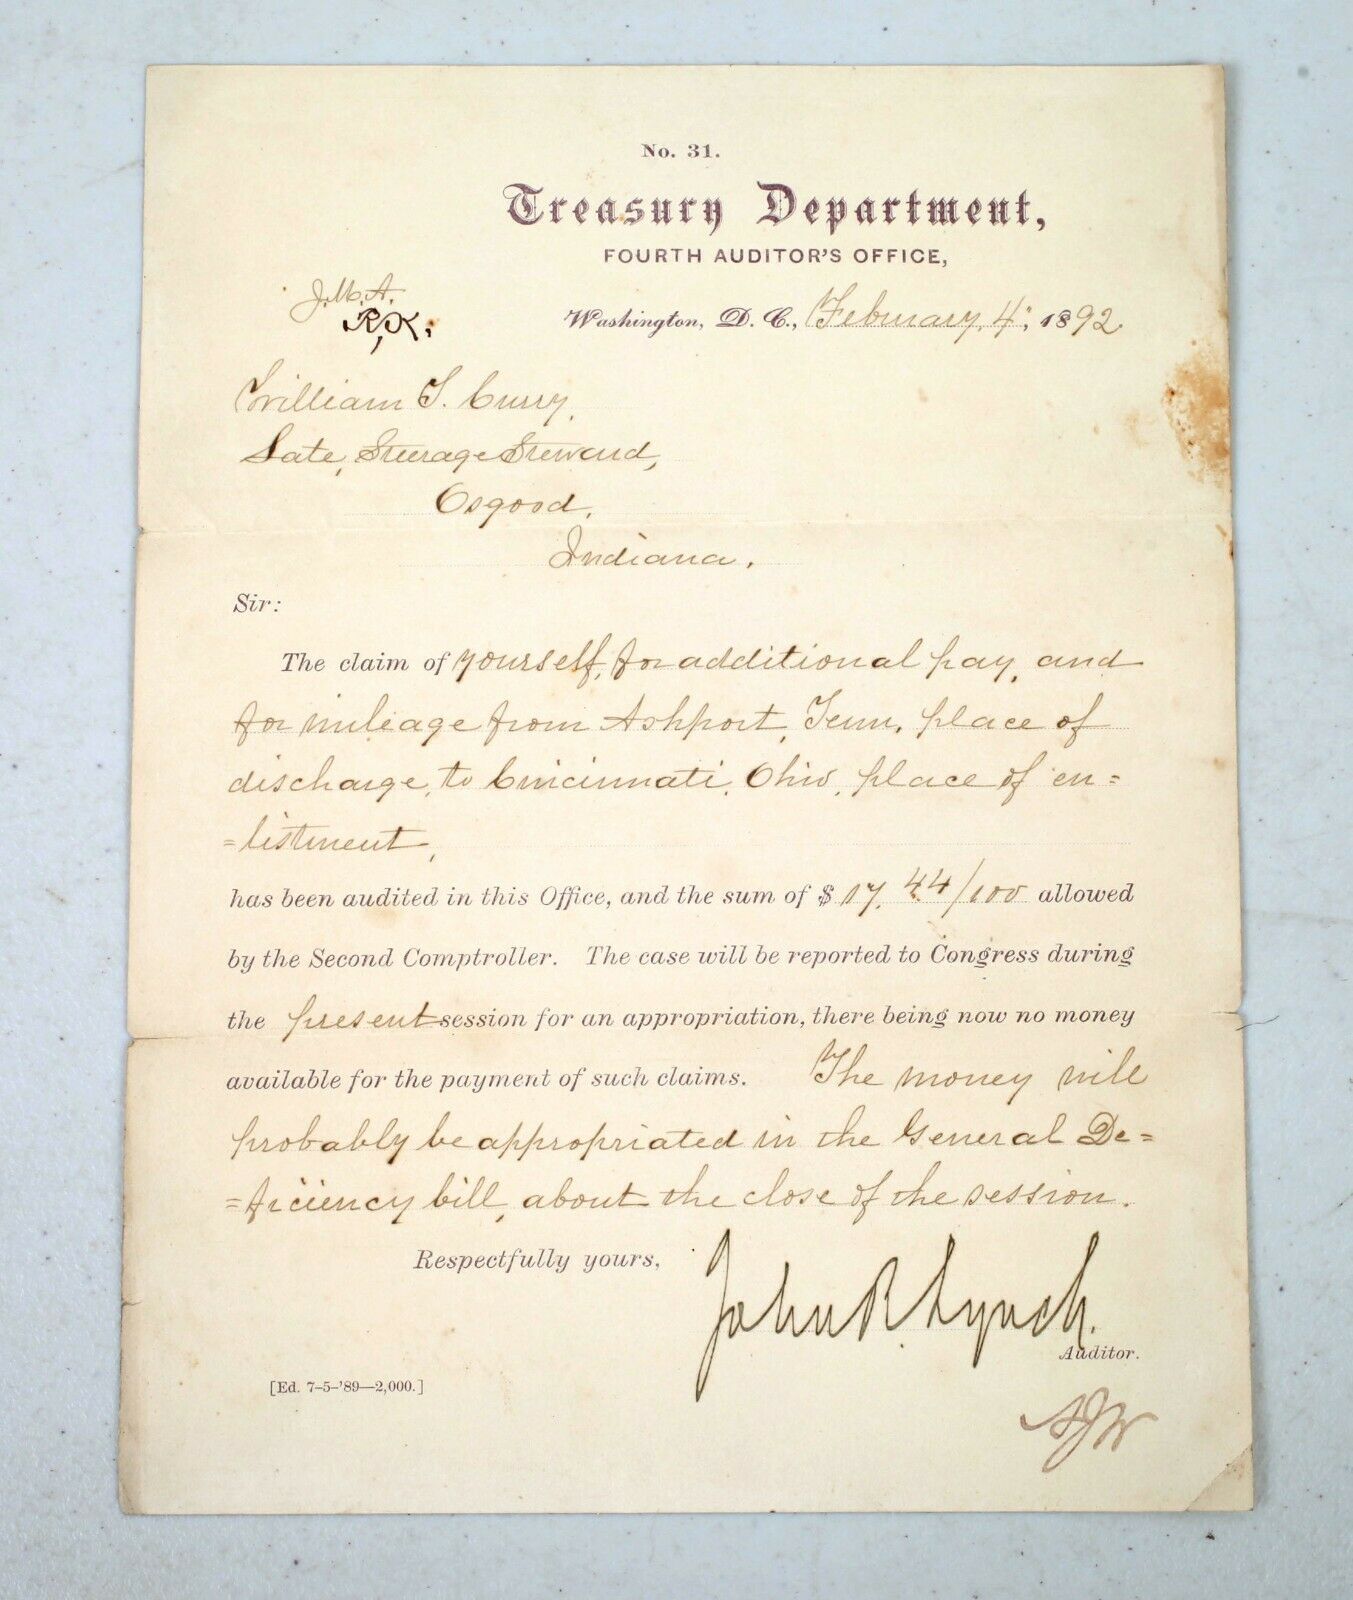 No. 31.
Treasury Department,
FOURTH AUDITOR'S OFFICE,
J.M.A.
R,K,
Washington, D. C., February, 4", 1892.
William T. Curry,
Late, Steerage Steward,
Osgood,
Indiana.
Sir:
The claim of yourself, for additional pay, and
for mileage from Ashport, Tenn. place of
discharge, to Cincinnati, Ohio, place of en=
=listment,
has been audited in this Office, and the sum of $17.44/100 allowed
by the Second Comptroller. The case will be reported to Congress during
the present session for an appropriation, there being now no money
available for the payment of such claims. The money will
probably be appropriated in the General De=
=ficiency bill, about the close of the session.
Respectfully yours,
John R. Lynch.
Auditor.
[Ed. 7–5–'89—2,000.]